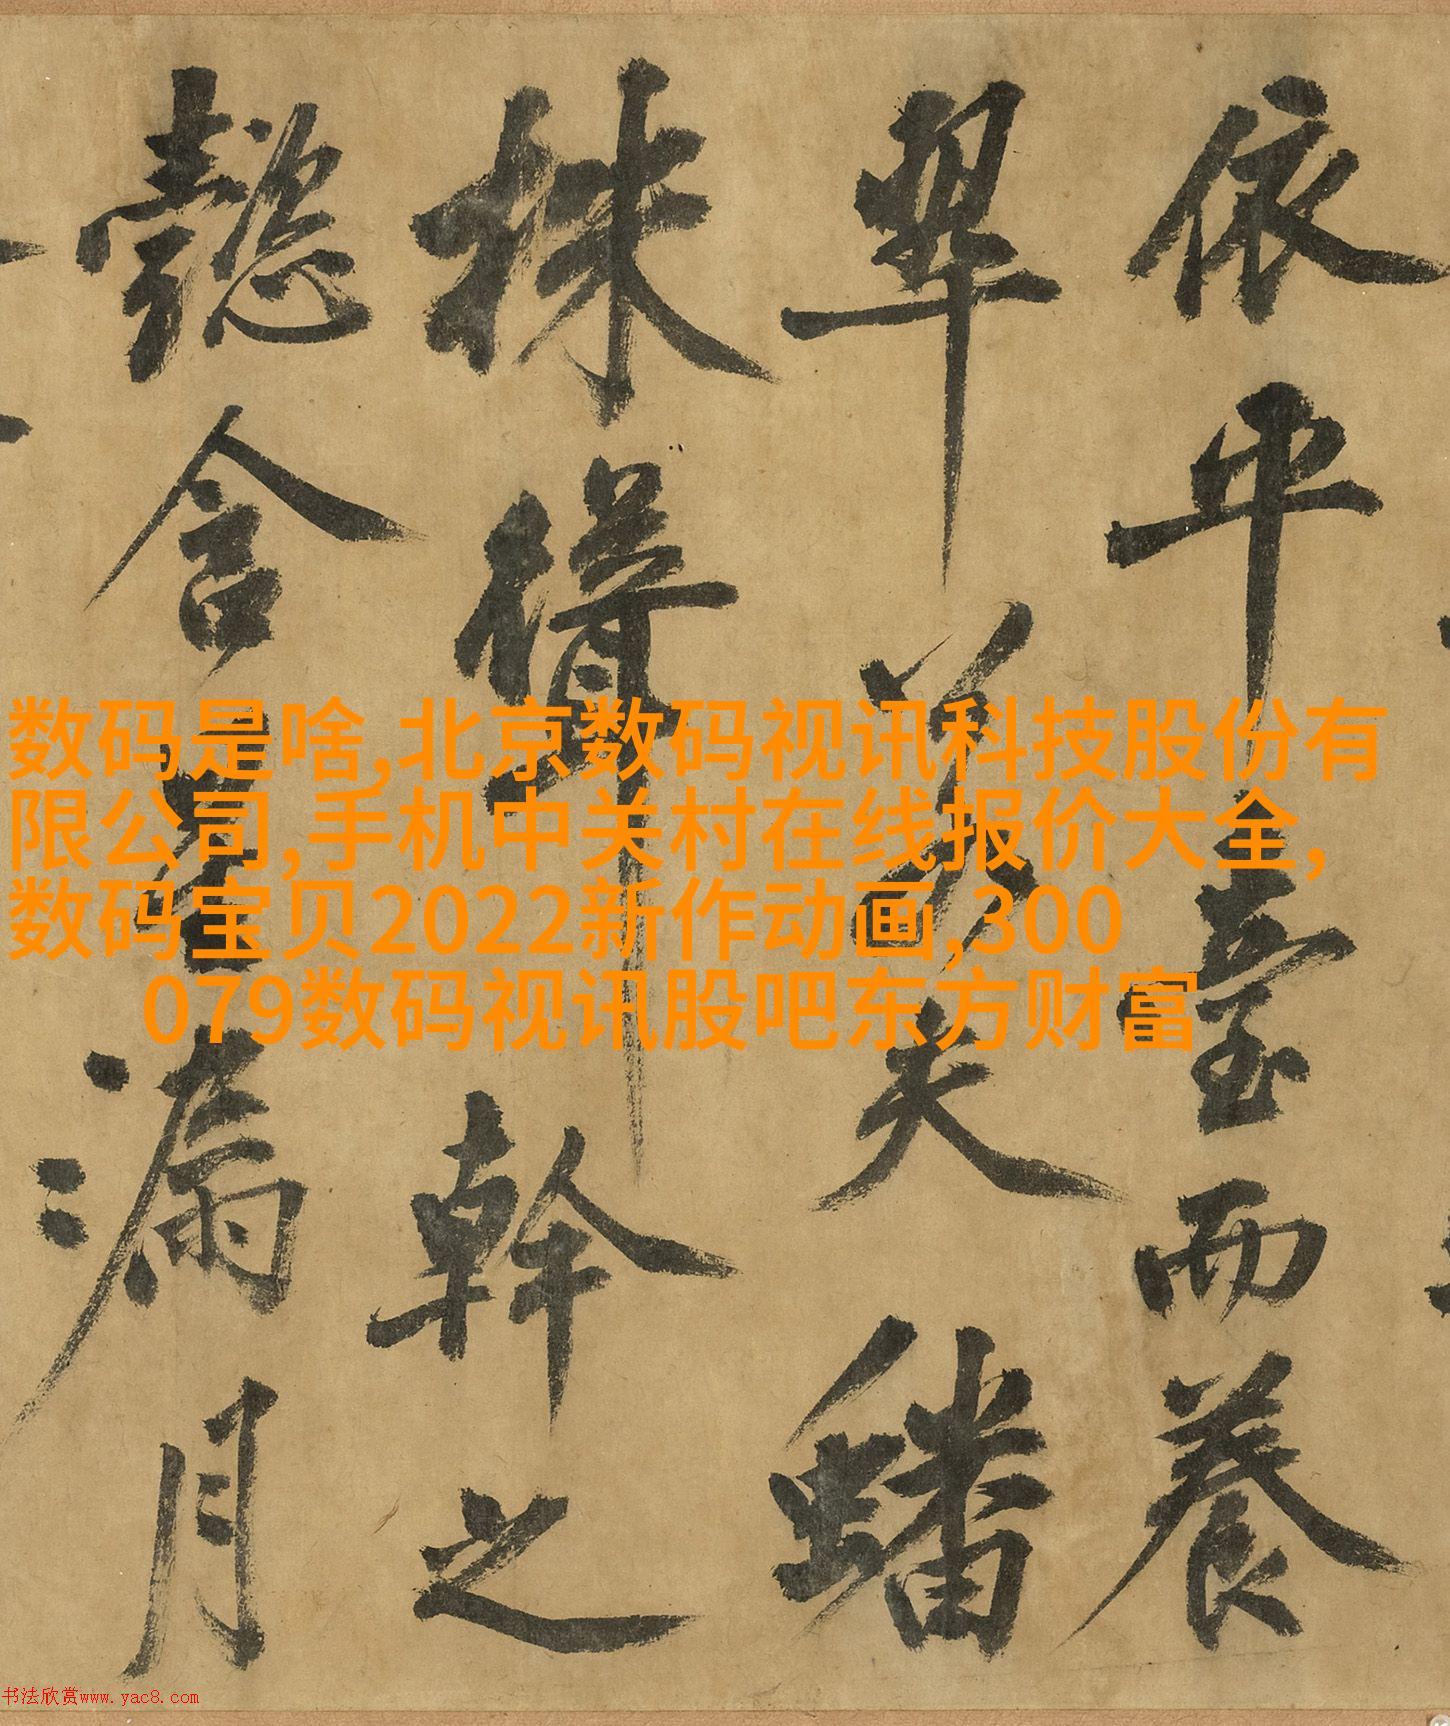 依平臺而養
翠若夫蟠
株幹之
懿含星漏月
数码是啥,北京数码视讯科技股份有
限公司,手机中关村在线报价大全,
数码宝贝2022新作动画,300
079数码视讯股吧东方财富
书法欣赏www.yac8.com